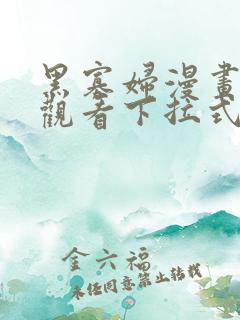 黑寡婦漫畫
觀看下拉式
金六福
未经同意禁止转载